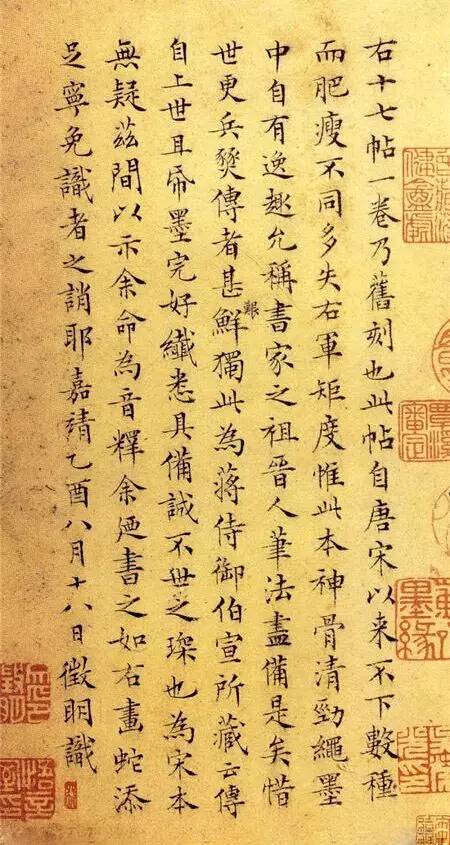 右十七帖一卷乃舊刻也此帖自唐宋以来不下數種
而肥瘦不同多失右軍矩度惟此本神骨清勁繩墨
中自有逸趣允稱書家之祖晉人筆法盡備是矣惜
世更兵燹傳者甚鮮獨此為蔣侍御伯宣所藏云傳
自上世且帋墨完好纖悉具備誠不世之琛也為宋本
無疑茲間以示余命為音釋余廼書之如右畫蛇添
足寧免識者之誚耶嘉靖乙酉八月十八日徵明識
覃溪
審定